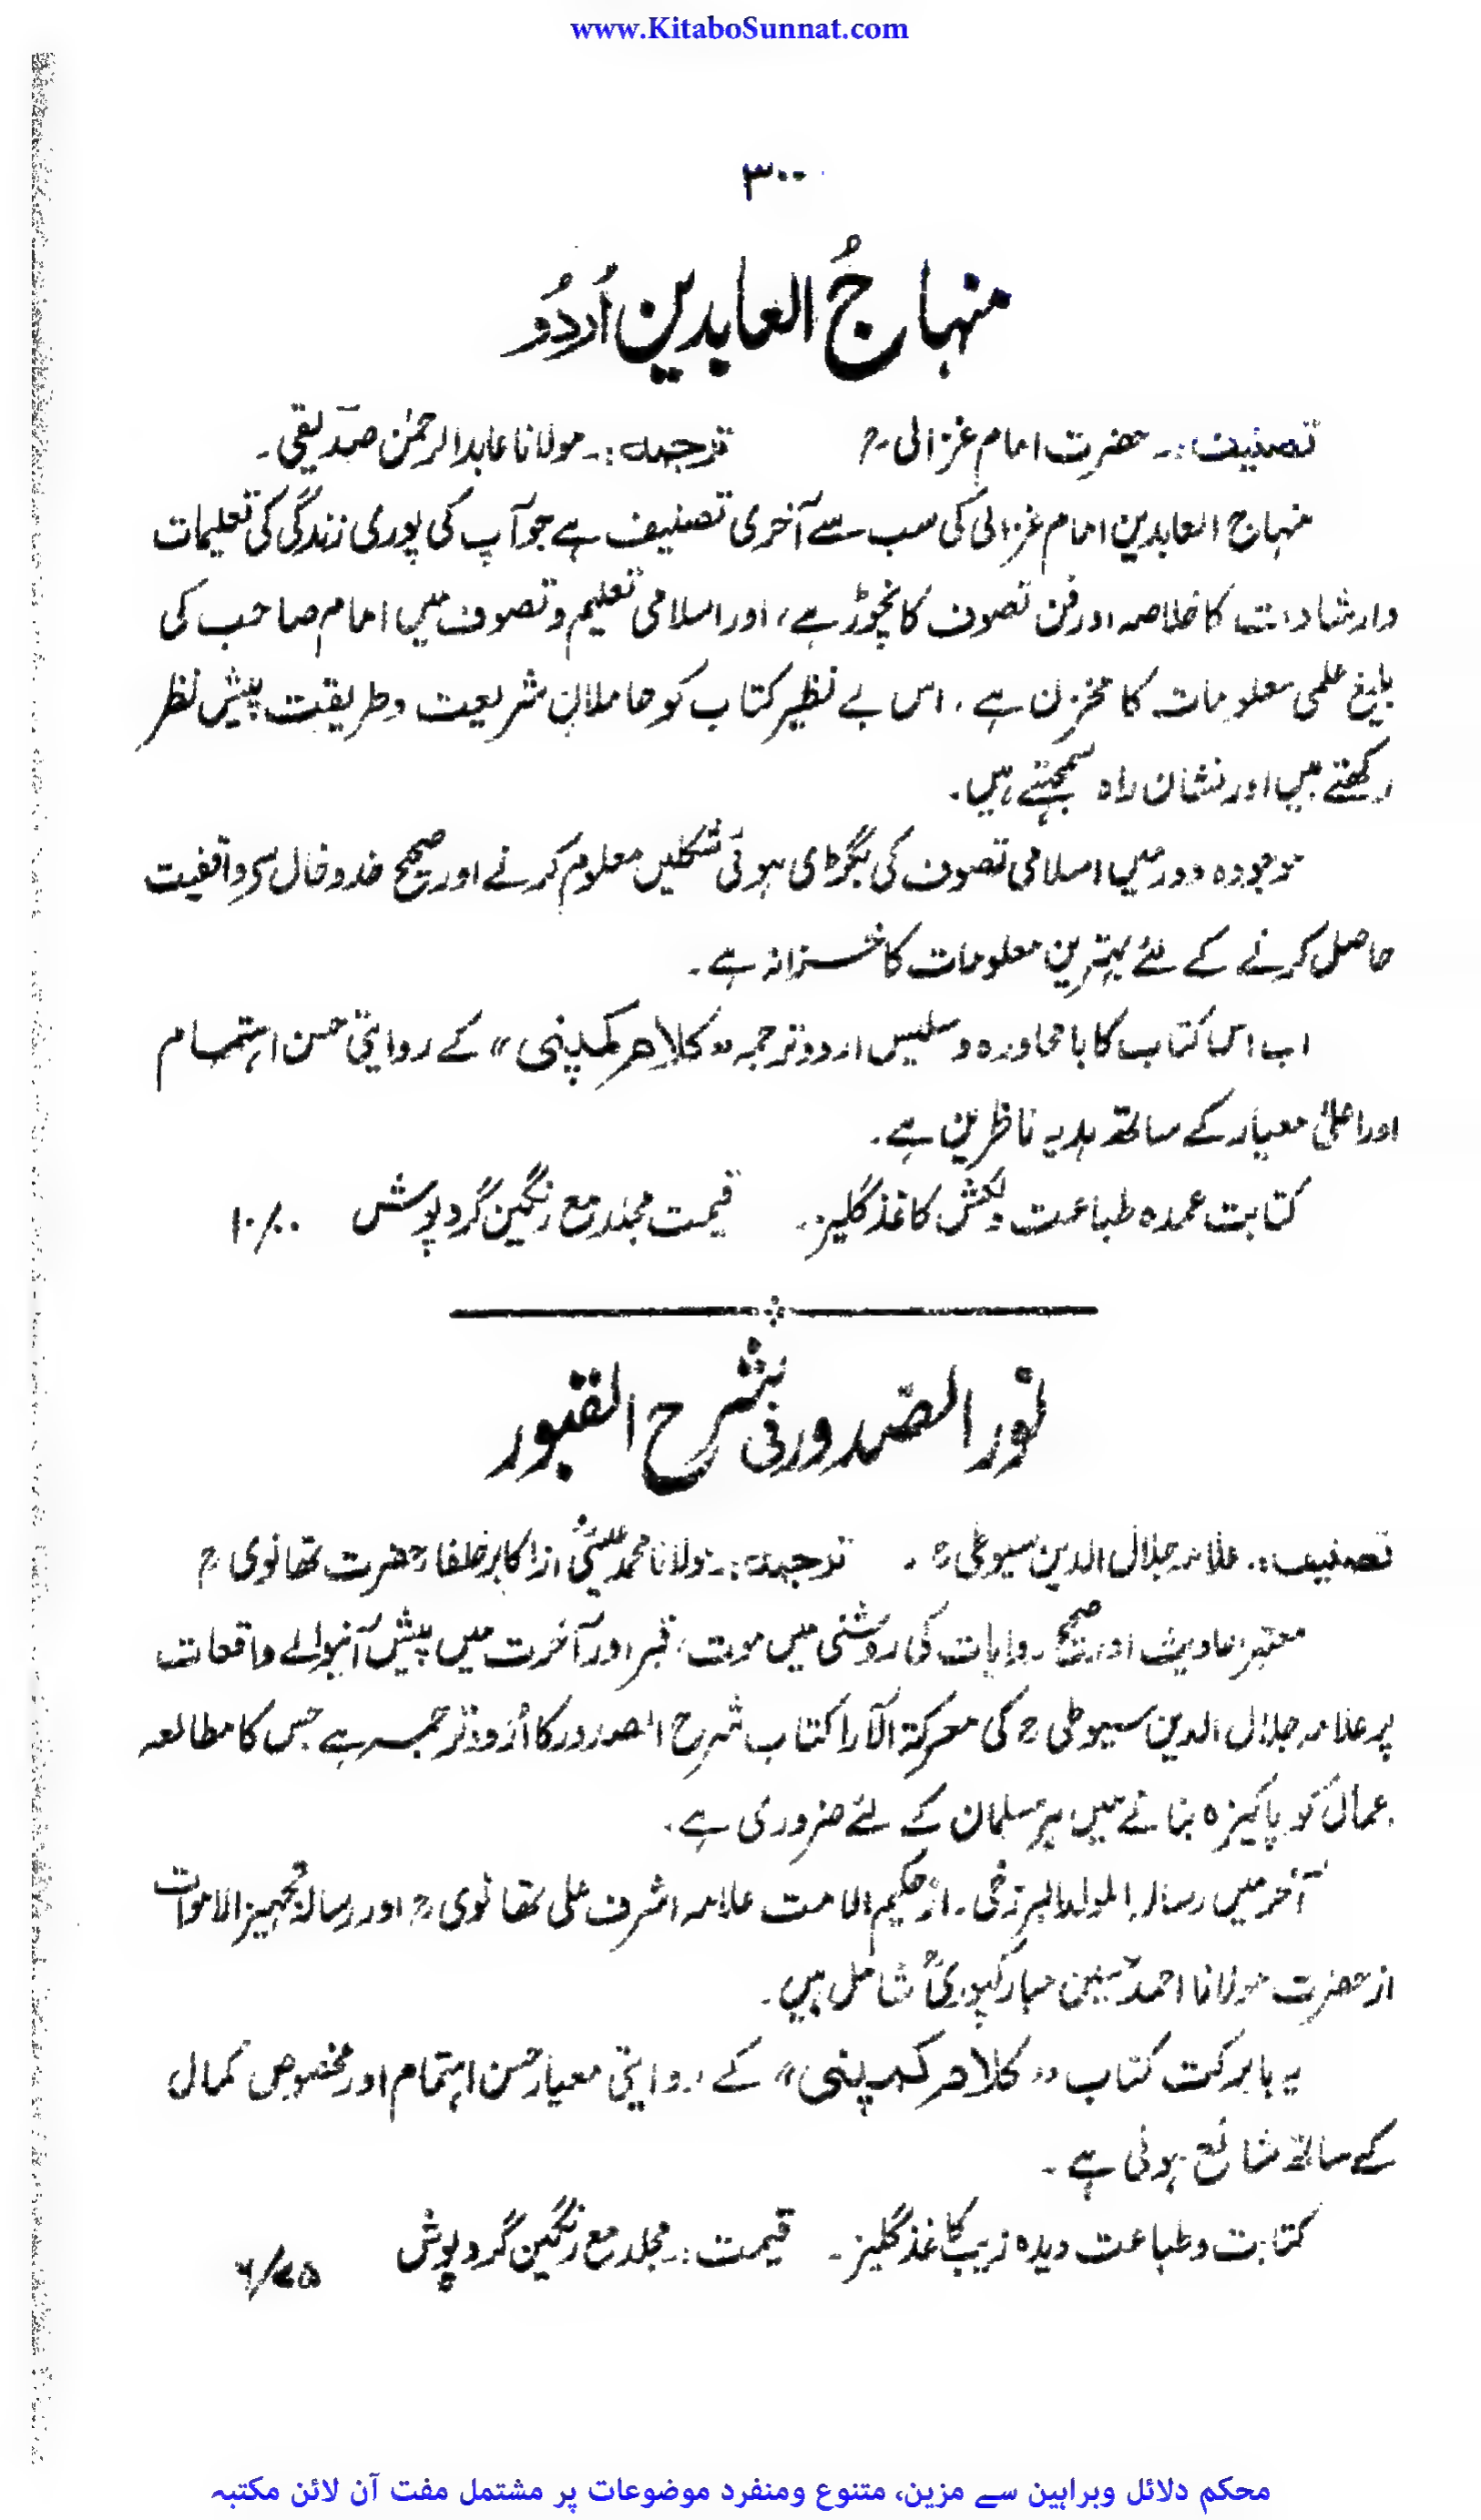 www.KitaboSunnat.com
۳۰۰
منہاجُ العابدین اُردُو
تصنیف:۔ حضرت امام غزالیؒ ترجمہ:۔ مولانا عابد الرحمٰن صدّیقی۔
منہاج العابدین امام غزالی کی سب سے آخری تصنیف ہے جو آپ کی پوری زندگی کی تعلیمات
وارشادات کا خلاصہ اور فن تصوف کا نچوڑ ہے، اور اسلامی تعلیم و تصوف میں امام صاحب کی
بلیغ علمی معلومات کا مخزن ہے، اس بے نظیر کتاب کو حاملانِ شریعت وطریقت پیش نظر
رکھتے ہیں اور نشان راہ سمجہتے ہیں۔
موجودہ دور میں اسلامی تصوف کی بگڑی ہوئی شکلیں معلوم کرنے اور صحیح خدوخال سے واقفیت
حاصل کرنے کے لئے بہترین معلومات کا خزانہ ہے۔
اب اس کتاب کا بامحاورہ وسلیس اردو ترجمہ "کلام کمپنی" کے روایتی حسن اہتمام
اور اعلیٰ معیار کے ساتھ ہدیہ ناظرین ہے۔
کتابت عمدہ طباعت دلکش کاغذ گلیز۔ قیمت مجلد مع رنگین گردپوش ۱۰/۰۰
نور الصّدور فی شرح القبور
تصنیف:۔ علامہ جلال الدین سیوطیؒ۔ ترجمہ:۔ مولانا محمد عیسیٰؒ از اکابر خلفاء حضرت تھانویؒ
معتبر احادیث اور صحیح روایات کی روشنی میں موت، قبر اور آخرت میں پیش آنیوالے واقعات
پر علامہ جلال الدین سیوطیؒ کی معرکۃ الآرا کتاب شرح الصدور کا اُردو ترجمہ ہے جس کا مطالعہ
اعمال کو پاکیزہ بنانے میں ہر مسلمان کے لئے ضروری ہے۔
آخر میں رسالہ المولد البرزخی۔ از حکیم الامت علامہ اشرف علی تھانویؒ اور رسالہ تجہیز الاموات
از حضرت مولانا احمد حسین مبارکپوریؒ شامل ہیں۔
یہ بابرکت کتاب "کلام کمپنی" کے روایتی معیار حسن اہتمام اور مخصوص کمال
کے ساتھ شائع ہوئی ہے۔
کتابت وطباعت دیدہ زیب کاغذ گلیز۔ قیمت:۔ مجلد مع رنگین گردپوش ۶/۷۵
محکم دلائل وبراہین سے مزین، متنوع ومنفرد موضوعات پر مشتمل مفت آن لائن مکتبہ